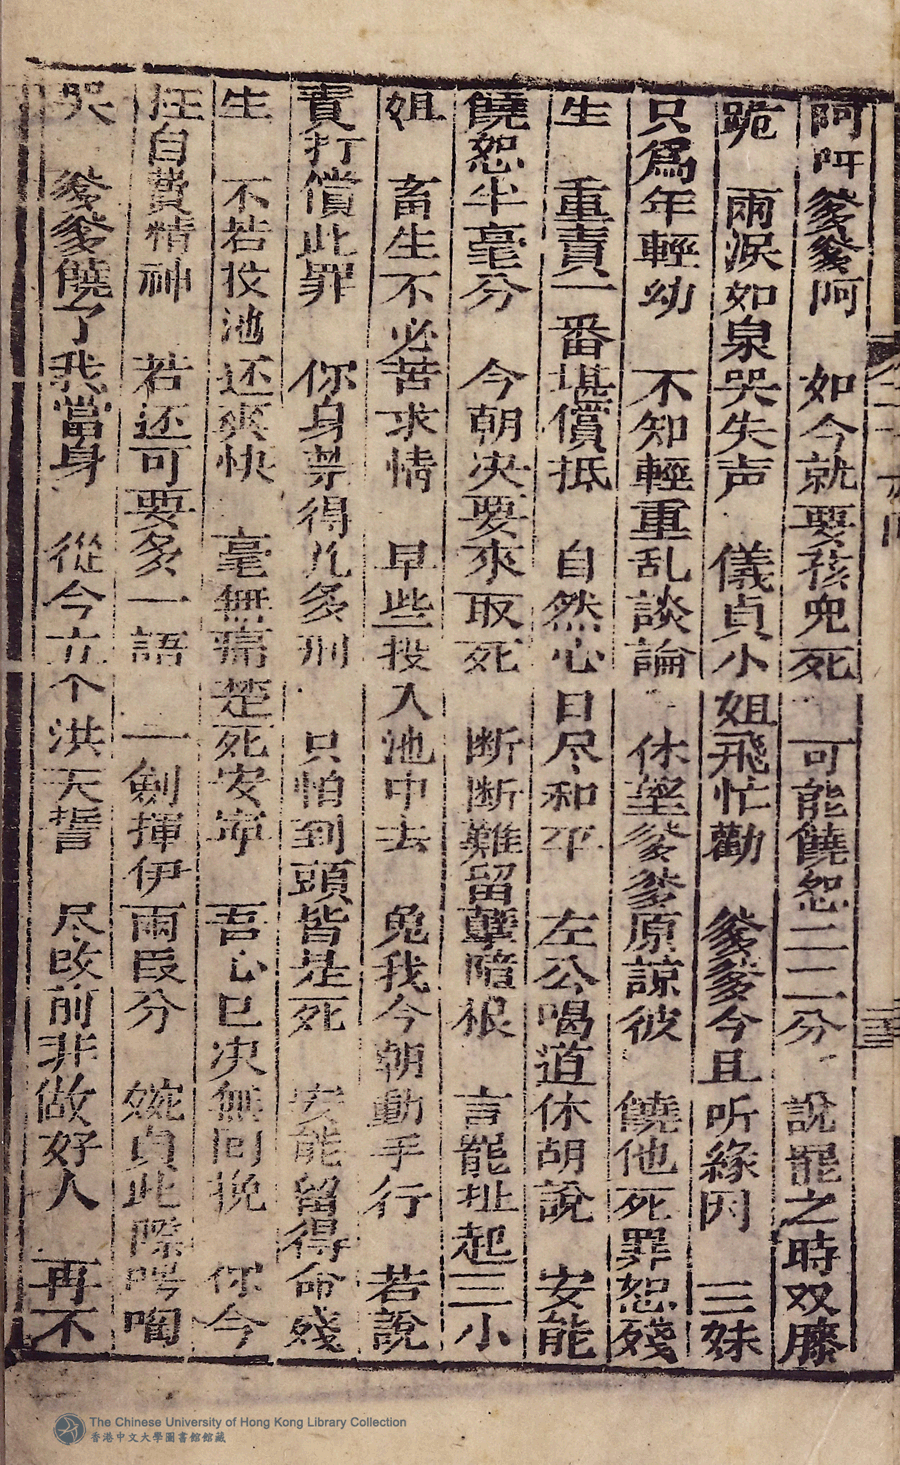 阿阿爹爹阿　如今就要孩児死　可能饒恕一二分　說罷之時双膝
跪　兩淚如泉哭失声　儀貞小姐飛忙勸　爹爹今且听緣因　三妹
只為年輕幼　不知輕重乱談論　休望爹爹原諒彼　饒他死罪恕殘
生　重責一番堪償抵　自然心日尽和平　左公喝道休胡說　安能
饒恕半毫分　今朝决要來取死　断断難留孽障根　言罷扯起三小
姐　畜生不必苦求情　早些投入池中去　免我今朝動手行　若說
責打償此罪　你身禁得几多刑　只怕到頭皆是死　安能留得命殘
生　不若投池还爽快　毫無痛楚死安寧　吾心已决無回挽　你今
枉自費精神　若还可要多一語　一劍揮伊兩段分　婉貞此際啕
哭　爹爹饒了我當身　從今立个洪天誓　尽改前非做好人　再不
The Chinese University of Hong Kong Library Collection
香港中文大學圖書館館藏